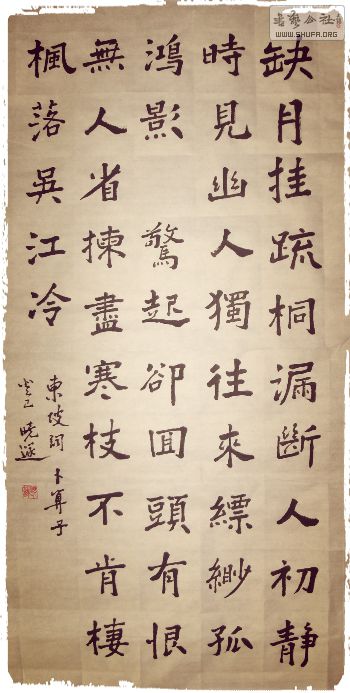 缺月挂疏桐漏斷人初靜
時見幽人獨往來縹緲孤
鴻影 驚起卻回頭有恨
無人省揀盡寒枝不肯棲
楓落吳江冷
東坡詞卜算子
癸巳 曉遜
書藝公社
WWW.SHUFA.ORG